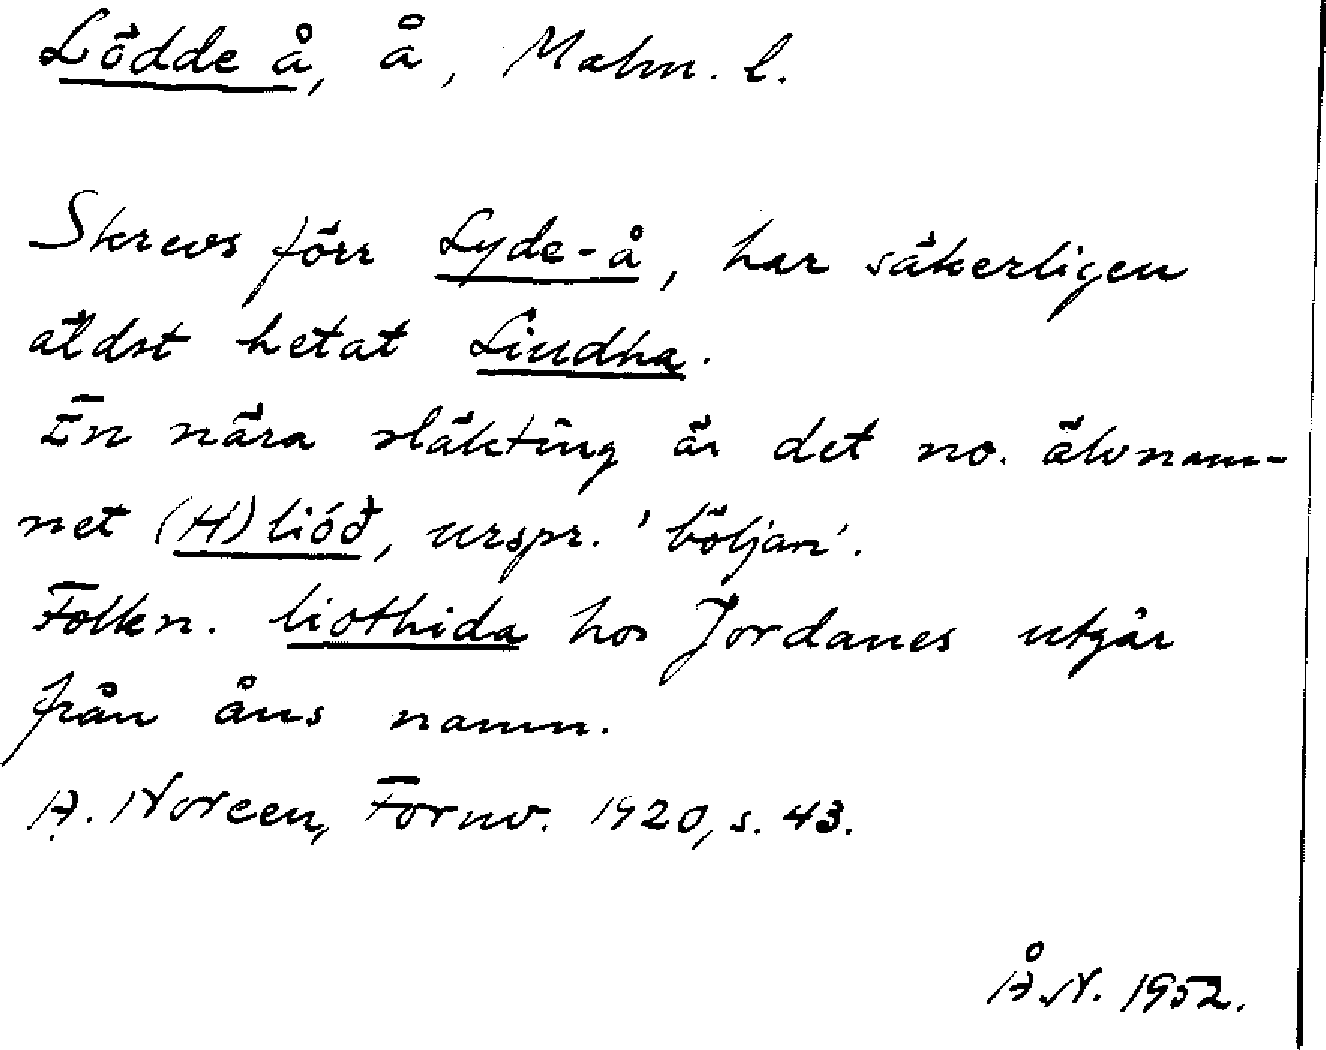 Lödde å, å, Malm. l.
Skrevs förr Lyde-å, har säkerligen
äldst hetat Liudha.
En nära släkting är det no. älvnam-
net (H)lióð, urspr. 'böljan'.
Folkn. liothida hos Jordanes utgår
från åns namn.
A. Noreen, Fornv. 1920, s. 43.
Å.N. 1952.